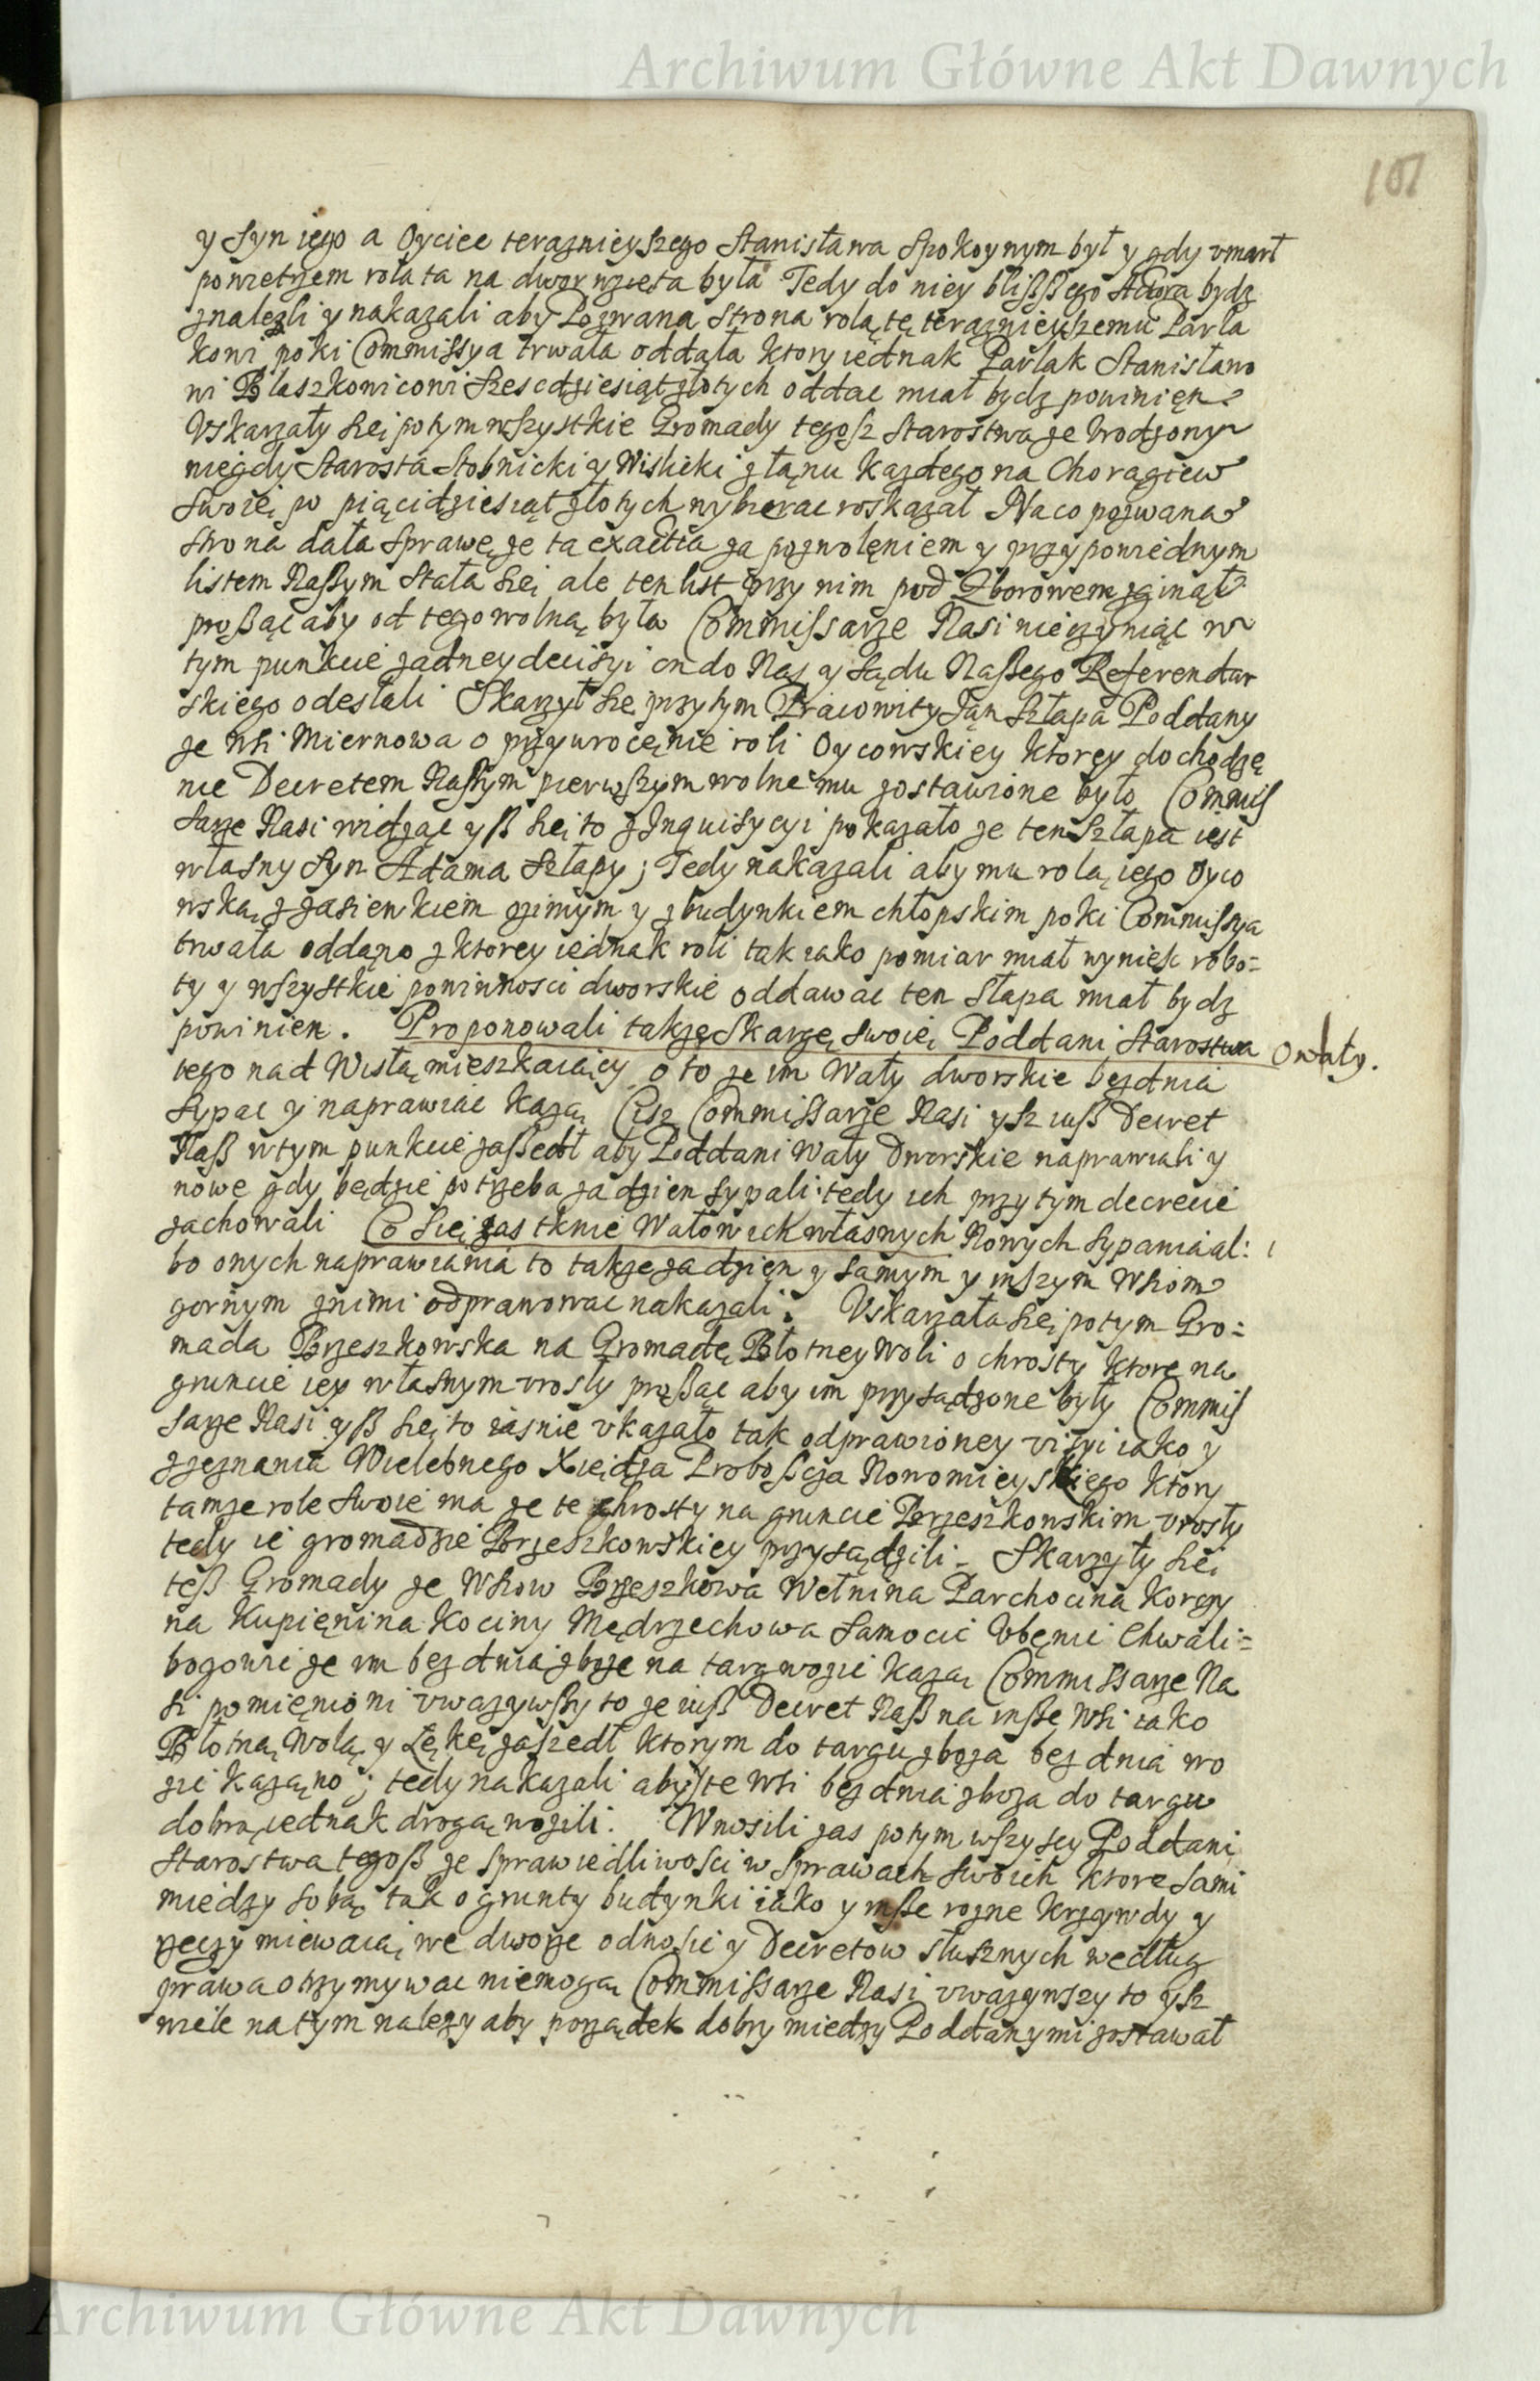 Archiwum Główne Akt Dawnych
101
y Syn iego a Oyciec teraznieyszego Stanisława Spokoynym był y gdy vmarł
powietrzem rola ta na dwor wzięta była Tedy do niey bliższego Actora bydz
znalezli y nakazali aby Pozwana Strona rolą tę teraznieyszemu Pavla
kowi poki Commissya trwała oddała ktory iednak Pavlak Stanisławo
wi Blaszkowicowi Szescdziesiąt złotych oddac miał bydz powinięn.
Vskarzały się potym wszystkie Gromady tegosz Starostwa ze Vrodzony
niegdy Starosta Stobnicki y Wislicki z łanu kazdego na Chorągiew
Swoię po piącidziesiąt złotych wybierac roskazał Na co pozwana
strona dała Sprawę ze ta exactia za pozwolęniem y przypowiednym
listem Naszym Stała się ale ten list przy nim pod Zborowem zginął
proßąc aby od tego wolną była Commissarze Nasi nieczyniąc w
tym punkcie zadney decisyi on do Nas y Sądu Naßego Referendar
skiego odesłali Skarzył się przytym Pracowity Ian Szłapa Poddany
ze wsi Miernowa o przywrocęnie roli Oycowskiey ktorey dochodzę
nie Decretem Naszym pierwszym wolne mu zostawione było Commis
sarze Nasi widząc yß się to z Inquisycyi pokazało ze ten Szłapa iest
własny Syn Adama Szłapy; Tedy nakazali aby mu rolą iego Oyco
wską z zasiewkiem zimym y z budynkiem chłopskim poki Commissya
trwała oddano z ktorey iednak roli tak iako pomiar miał wyniesc robo=
ty y wszystkie powinnosci dworskie oddawac ten Słapa miał bydz
powinien. Proponowali takze Skargę Swoię Poddani Starostwa
O wały.
tego nad Wisłą mieszkaiący o to ze im Wały dworskie bez dnia
Sypac y naprawiac kazą Ciz Commissarze Nasi ysz iuß Decret
Naß w tym punkcie zaßedł aby Poddani Wały Dworskie naprawiali y
nowe gdy będzie potrzeba za dzien Sypali tedy ich przy tym decrecie
zachowali Co się zas tknie Wałow ich własnych Nowych Sypania al:
bo onych naprawiania to takze za dzien y samym y inszym Wsiom
gornym z nimi odprawowac nakazali. Vskarzała się potym Gro=
mada Brzeszkowska na Gromadę Błotney Woli o chrosty ktore na
gruncie iey własnym vrosły proßąc aby im przysądzone były Commis
sarze Nasi yß się to iasnie vkazało tak odprawioney visyi iako y
z zeznania Wielebnego Xiędza Proboscza Nowomieyskiego ktory
tamze role Swoie ma ze te chrosty na gruncie Brzeszkowskim vrosły
tedy ie gromadzie Brzeszkowskiey przysądzili. Skarzyły się
teß Gromady ze Wsiow Brzeszkowa Wełnina Parchocina Korczy
na Kupięnina Kociny Mędrzechowa Samocic Vbęnie Chwali=
bogowie ze im bez dnia zboze na targ wozic kazą Commissarze Na
si pomięnioni vwazywszy to ze iuß Decret Naß na inße Wsi iako
Błotną Wolą y Lękę zaszedł ktorym do targu zboza bez dnia wo
zic kazano; tedy nakazali aby te Wsi bez dnia zboza do targu
dobrą iednak drogą wozili. Wnosili zas potym wszyscy Poddani
Starostwa tegoß ze sprawiedliwosci w Sprawach Swoich ktore sami
miedzy sobą tak o grunty budynki iako y inße rozne krzywdy y
rzeczy miewaią we dworze odnosic y Decretow słusznych według
prawa otrzymywac niemogą Commissarze Nasi vwazywszy to ysz
wiele na tym nalezy aby porządek dobry miedzy Poddanymi zostawał
Archiwum Główne Akt Dawnych